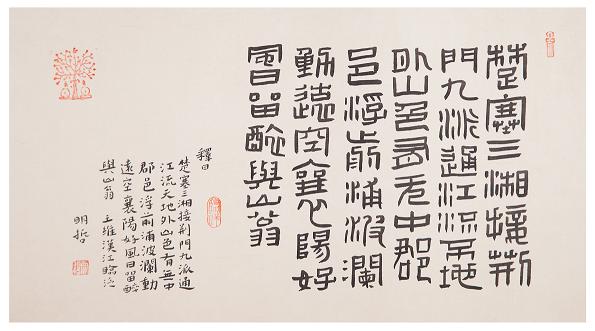 楚塞三湘接荊
門九派通江流天地
外山色有无中郡
邑浮前浦波瀾
動遠空襄陽好
風日留醉與山翁
釋曰
楚塞三湘接荆門九派通
江流天地外山色有無中
郡邑浮前浦波瀾動
遠空襄陽好風日留醉
與山翁 王維漢江臨泛
明哲